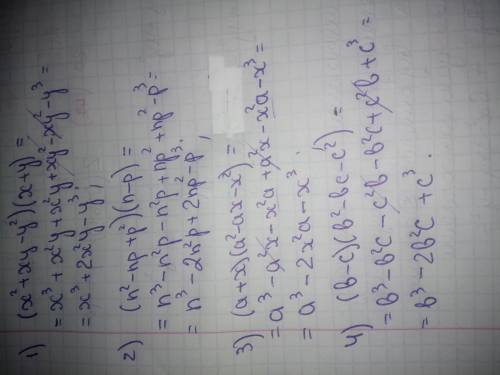 1) (x³+xy-y²)(x+y) =
= x³+x²y+x²y+xy²-xy²-y³ =
= x³+2x²y-y³;
2) (n²-np+p²)(n-p) =
= n³-n²p-n²p+np²+np²-p³ =
= n³-2n²p+2np²-p³;
3) (a+x)(a²-ax-x²) =
= a³-a²x-x²a+a²x-x²a-x³ =
= a³-2x²a-x³.
4) (b-c)(b²-bc-c²) =
= b³-b²c-c²b-b²c+c²b+c³ =
= b³-2b²c+c³.